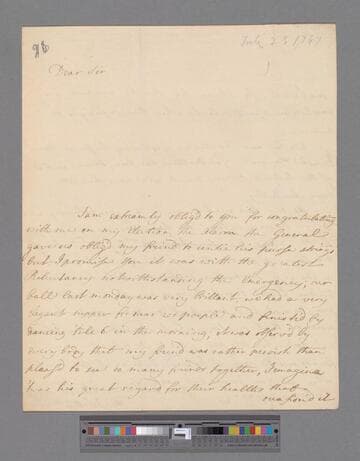 July 23 1747
Dear Sir
I am extreamly obligd to you for congratulating
with me on my Election, the Alarm the General
gave us obligd my friend to untie his purse strings
but I promise you it was with the greatest
Reluctance notwithstanding the emergency, our
ball last monday was very brillant we had a very
elegant supper for near 200 people and finished by
danceing till 6 in the morning, it was observd by
every body that my friend was rather peevish than
pleas'd to see so many friends together, I imagine
'twas his great regard for their healths that
occasiond it